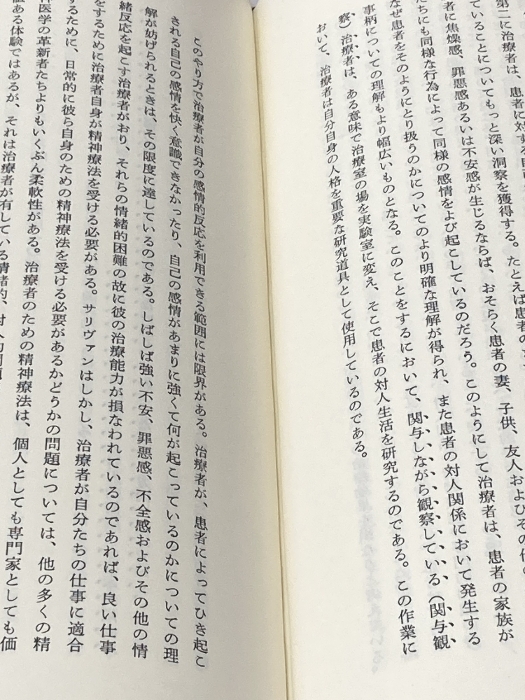 第二に治療者は、患者に対する
ていることについてもっと深い洞察を獲得する。たとえば患者
者に焦燥感、罪悪感あるいは不安感が生じるならば、おそらく患者の妻、子供、友人および
たちにも同様な行為によって同様の感情をよび起こしているのだろう。このようにして治療者は、患者の家族が
なぜ患者をそのようにとり扱うのかについてのより明確な理解が得られ、また患者の対人関係において発生する
事柄についての理解もより幅広いものとなる。このことをするにおいて、関与しながら観察している（関与観
察）治療者は、ある意味で治療室の場を実験室に変え、そこで患者の対人生活を研究するのである。この作業に
おいて、治療者は自分自身の人格を重要な研究道具として使用しているのである。
このやり方で治療者が自分の感情的反応を利用できる範囲には限界がある。治療者が、患者によってひき起こ
される自己の感情を快く意識できなかったり、自己の感情があまりに強くて何が起こっているのかについての理
解が妨げられるときは、その限度に達しているのである。しばしば強い不安、罪悪感、不全感およびその他の情
緒反応を起こす治療者がおり、それらの情緒的困難の故に彼の治療能力が損なわれているのであれば、良い仕事
をするために治療者自身が精神療法を受ける必要がある。サリヴァンはしかし、治療者が自分たちの仕事に適合
するために、日常的に彼ら自身のための精神療法を受ける必要があるかどうかの問題については、他の多くの精
神医学の革新者たちよりもいくぶん柔軟性がある。治療者のための精神療法は、個人としても専門家としても価
値ある体験ではあるが、それは治療者が有している情緒的、対人